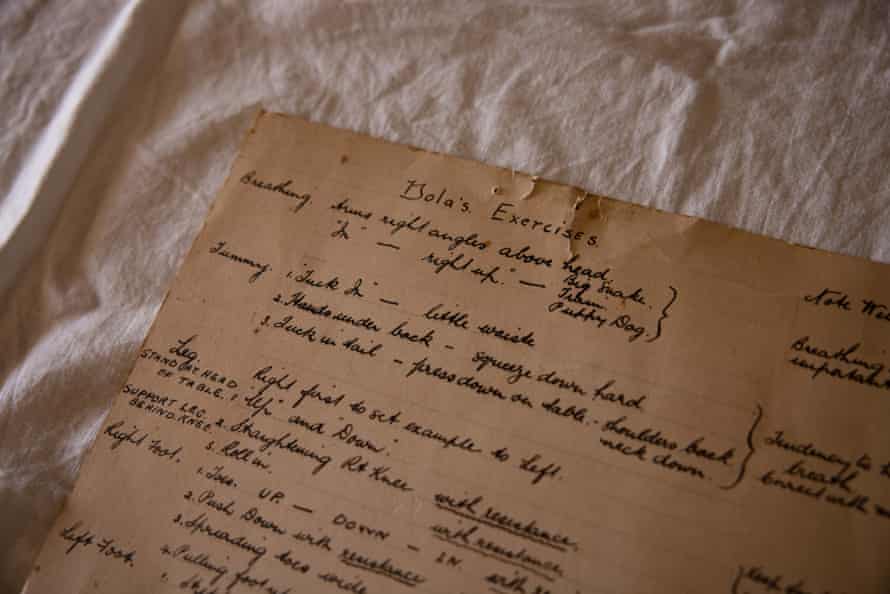 Bola's. Exercises.
Note
Breathing. Arms right angles above head
"In" — right up" — Big Snake.
Train
Puppy Dog.
Breathing
Tummy. 1. "Tuck In" — little waist
2. Hands under back — squeeze down hard
3. Tuck in tail — press down on table. — shoulders back
neck down.
Tendency to
breath
Correct with
Leg. Right first to set example to Left.
STAND AT HEAD
OF TABLE. 1. "Up" and "Down".
SUPPORT LEG.
BEHIND. KNEE 2. Straightening Rt Knee with resistance.
3. Roll in. with resistance.
Right Foot. 1. Toes. UP. — DOWN — IN. with
2. Push Down with resistance
3. Spreading toes wide
4. Pulling foot up
Left Foot. 1.